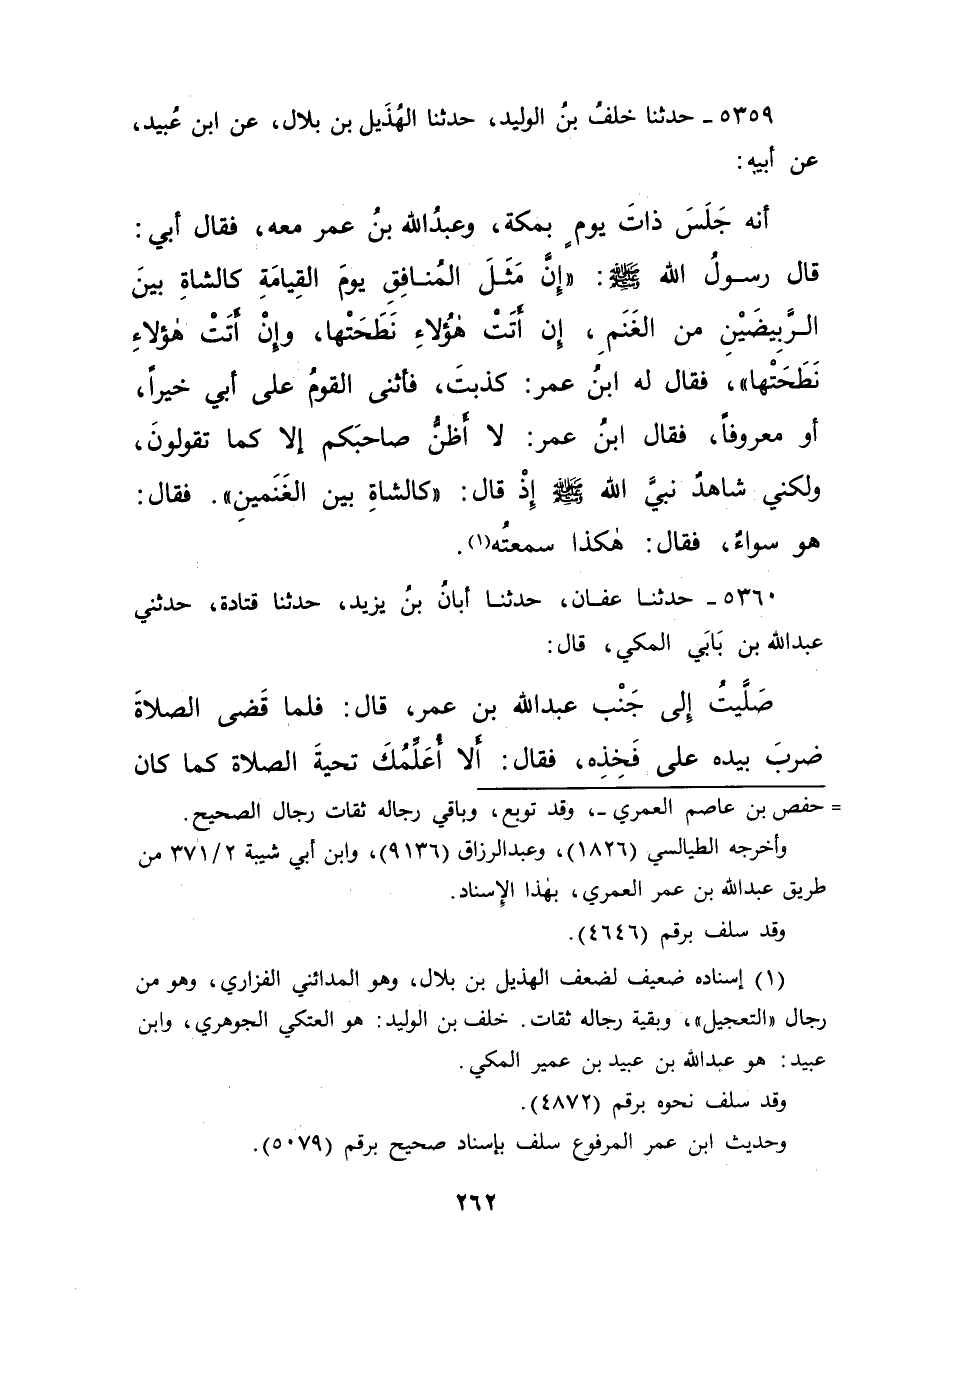 ٥٣٥٩ ـ حدثنا خلفُ بنُ الوليد، حدثنا الهُذَيل بن بلال، عن ابن عُبيد،
عن أبيه:
أنه جَلَسَ ذاتَ يومٍ بمكة، وعبدُالله بنُ عمر معه، فقال أبي:
قال رسولُ الله ﷺ: «إِنَّ مَثَلَ المُنافِقِ يومَ القِيامَةِ كالشاةِ بينَ
الرَّبِيضَيْنِ من الغَنَمِ، إن أَتَتْ هٰؤُلاءِ نَطَحَتْها، وإِنْ أَتَتْ هٰؤلاءِ
نَطَحَتْها»، فقال له ابنُ عمر: كذبتَ، فأثنى القومُ على أبي خيراً،
أو معروفاً، فقال ابنُ عمر: لا أَظنُّ صاحبَكم إلا كما تقولونَ،
ولكني شاهدٌ نبيَّ الله ﷺ إِذْ قال: «كالشاةِ بين الغَنَمينِ». فقال:
هو سواءٌ، فقال: هٰكذا سمعتُه(١).
٥٣٦٠ ـ حدثنا عفان، حدثنا أبانُ بنُ يزيد، حدثنا قتادة، حدثني
عبدالله بن بَابَي المكي، قال:
صَلَّيتُ إلى جَنْب عبدالله بن عمر، قال: فلما قَضى الصلاةَ
ضربَ بيده على فَخِذِه، فقال: أَلا أُعَلِّمُكَ تحيةَ الصلاة كما كان
= حفص بن عاصم العمري ـ، وقد توبع، وباقي رجاله ثقات رجال الصحيح.
وأخرجه الطيالسي (١٨٢٦)، وعبدالرزاق (٩١٣٦)، وابن أبي شيبة ٣٧١/٢ من
طريق عبدالله بن عمر العمري، بهٰذا الإسناد.
وقد سلف برقم (٤٦٤٦).
(١) إسناده ضعيف لضعف الهذيل بن بلال، وهو المدائني الفزاري، وهو من
رجال «التعجيل»، وبقية رجاله ثقات. خلف بن الوليد: هو العتكي الجوهري، وابن
عبيد: هو عبدالله بن عبيد بن عمير المكي.
وقد سلف نحوه برقم (٤٨٧٢).
وحديث ابن عمر المرفوع سلف بإسناد صحيح برقم (٥٠٧٩).
٢٦٢